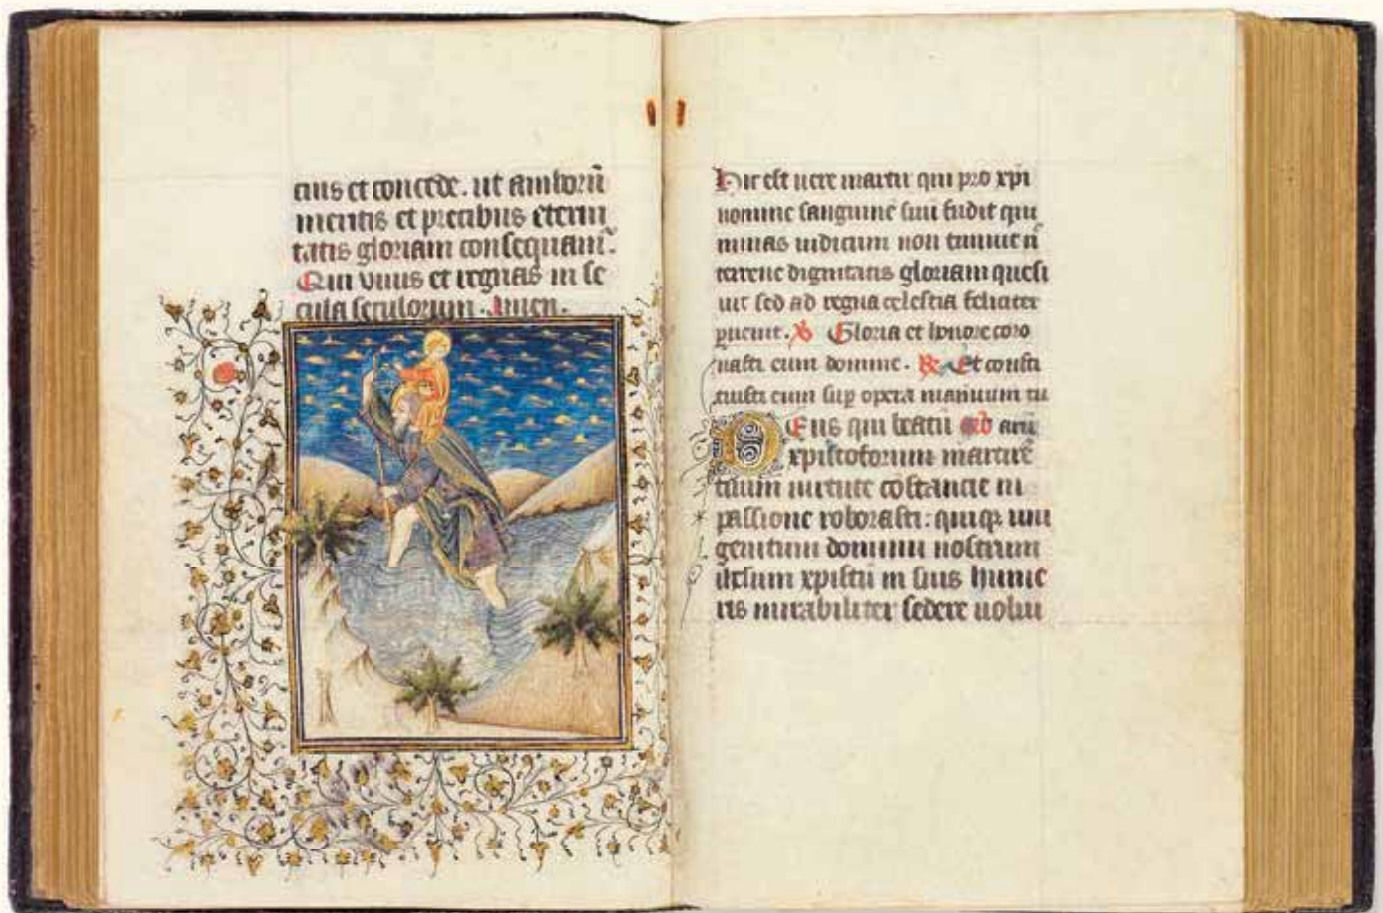 eius et concede. ut amborū
meritis et precibus eterni
tatis gloriam consequam̄.
Qui viuis et regnas in se
cula seculorum. Amen.
Hic est uere martir qui pro xp̄i
nomine sanguinē suū fudit qui
minas iudicum non timuit n̄
terrene dignitatis gloriam quesi
uit sed ad regna celestia feliciter
peruenit. Gloria et honore coro
nasti eum domine. Et consti
tuisti eum sup opera manuum tu
Deus qui beatū arū
xpistoforum martirē
tuum uirtute cōstancie in
passione roborasti: quiqȝ uni
genitum dominū nostrum
ihesum xpistū in suis hume
ris mirabiliter sedere uolui